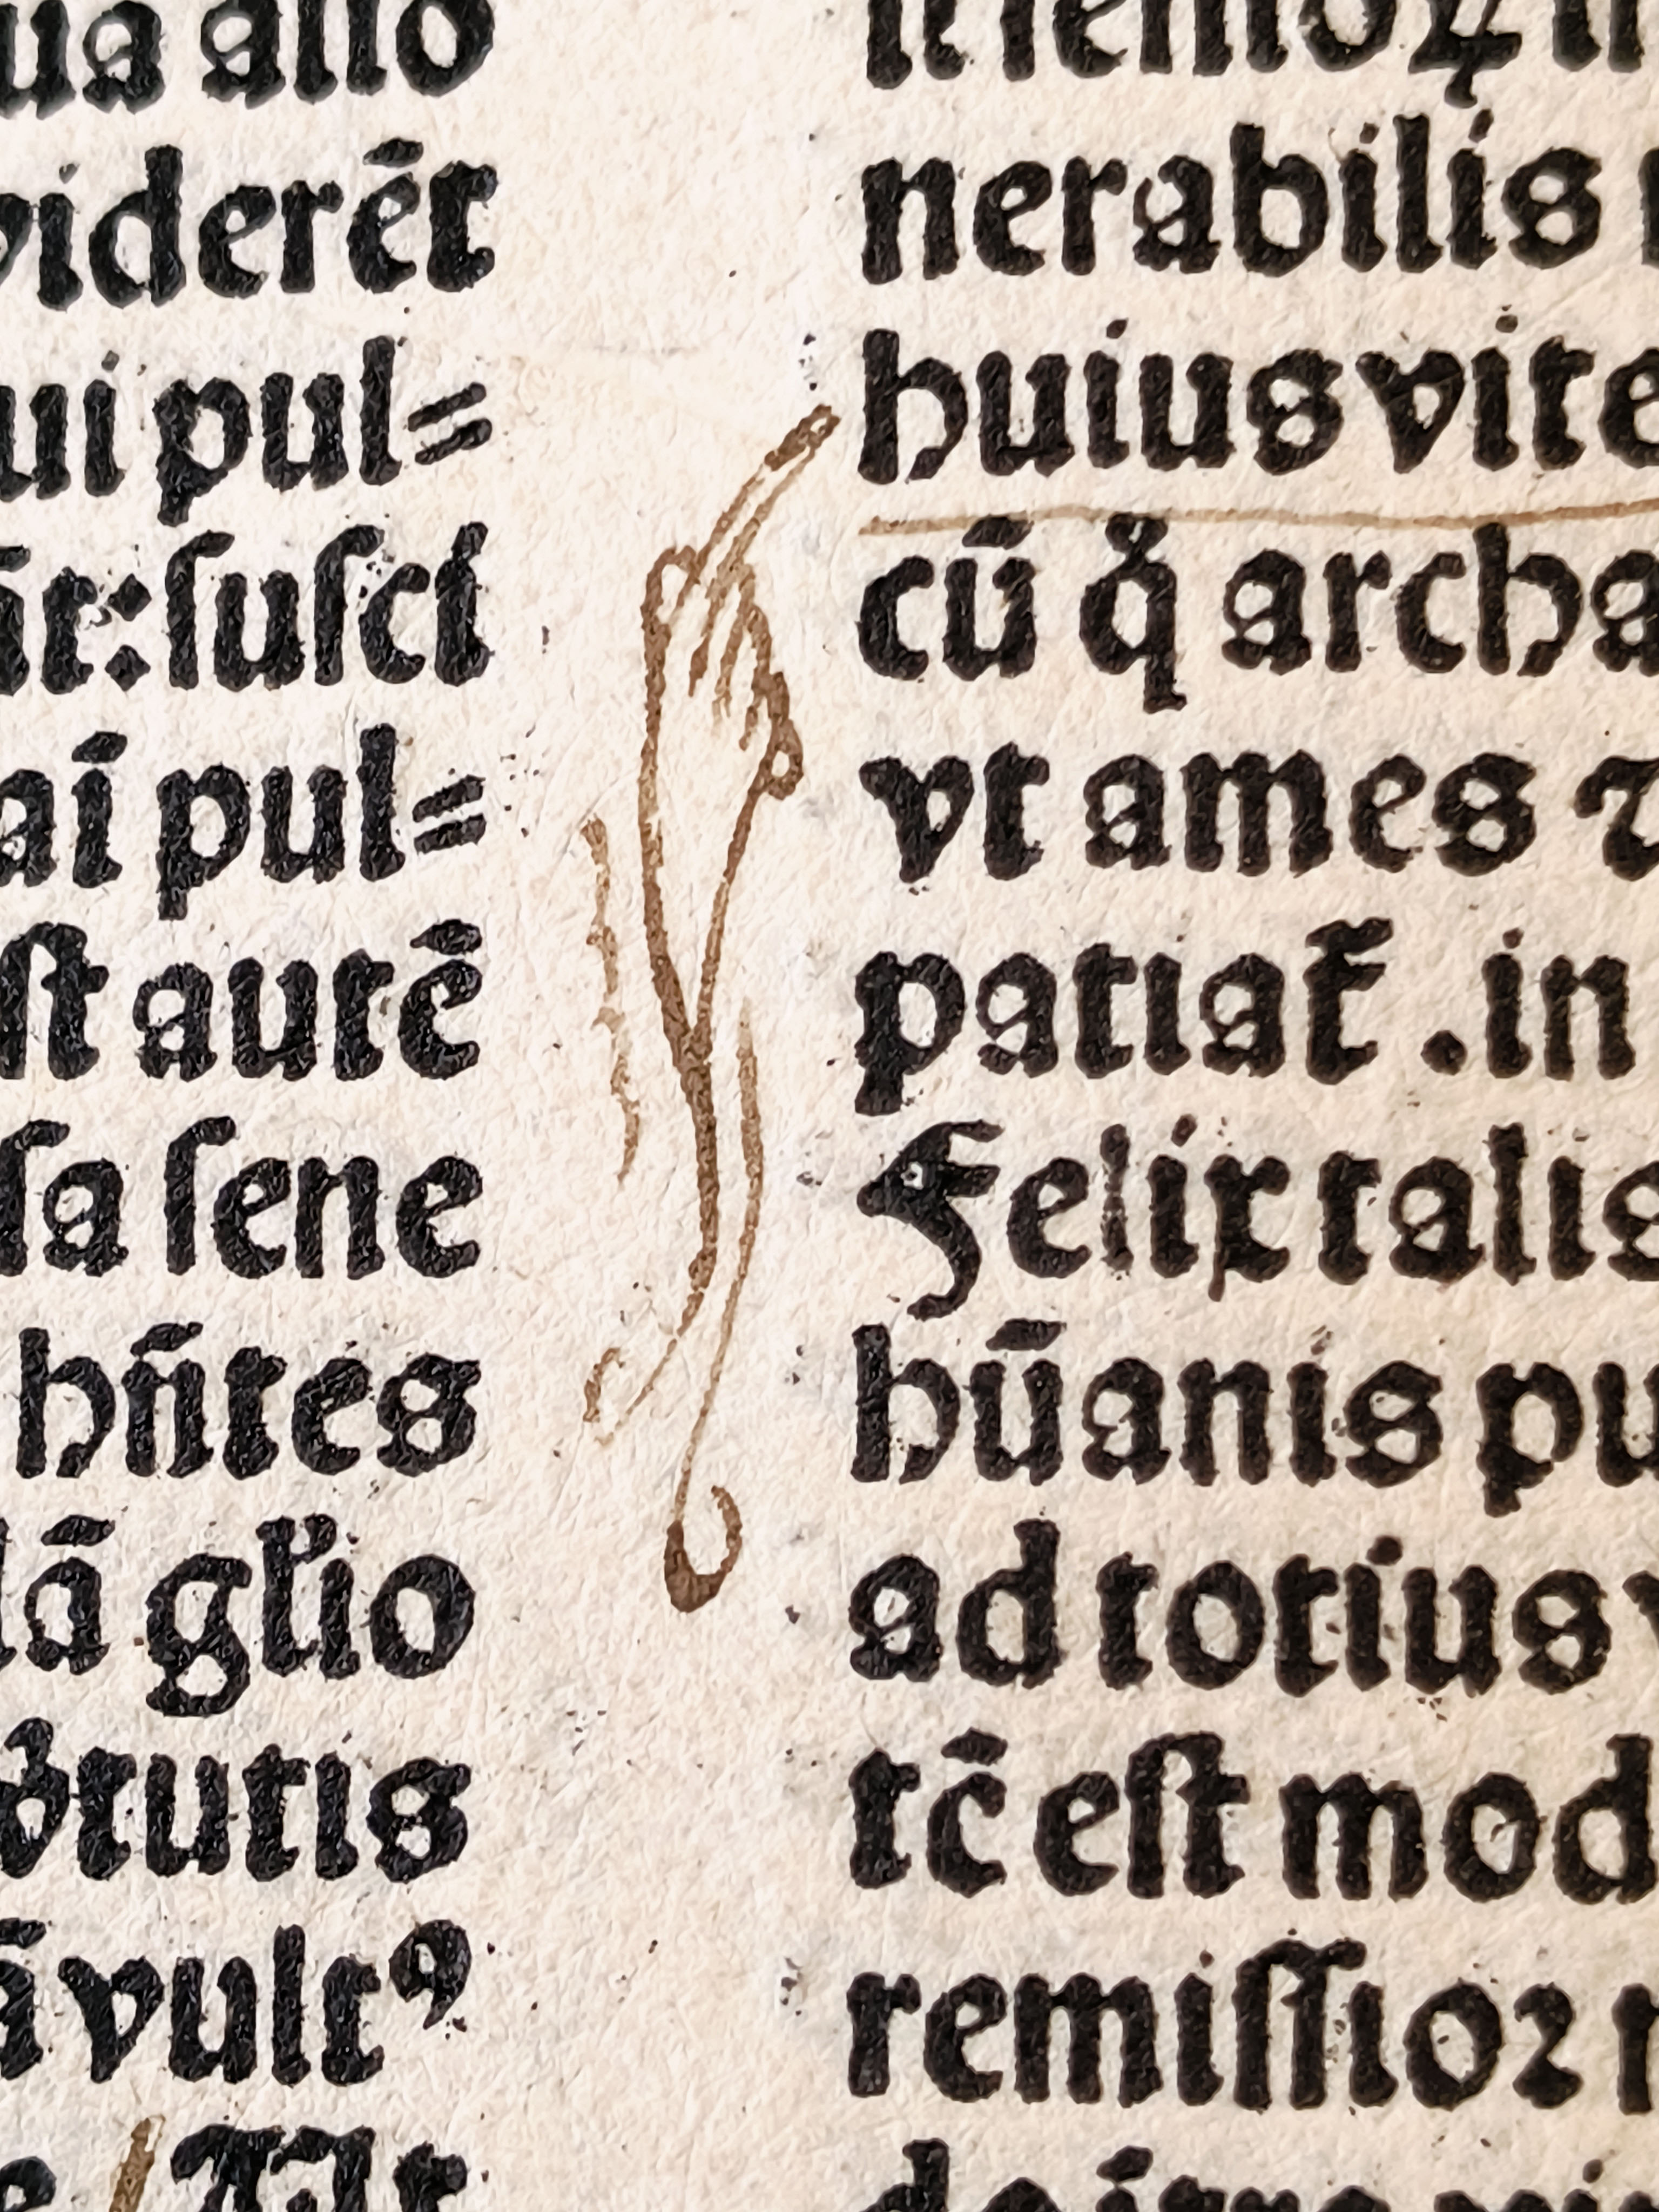 ua alio
viderēt
ui pul=
āt:ſuſci
ai pul=
ſt autē
ſa ſene
hn̄tes
lā gl'io
ꝟtutis
ā vultꝰ
nerabilis
huius vite
cū ꝙ archa
vt ames ⁊
patiat᷑ .in
Felix talis
hūanis pu
ad totius v
tc̄ eſt mod
remiſſioꝛ